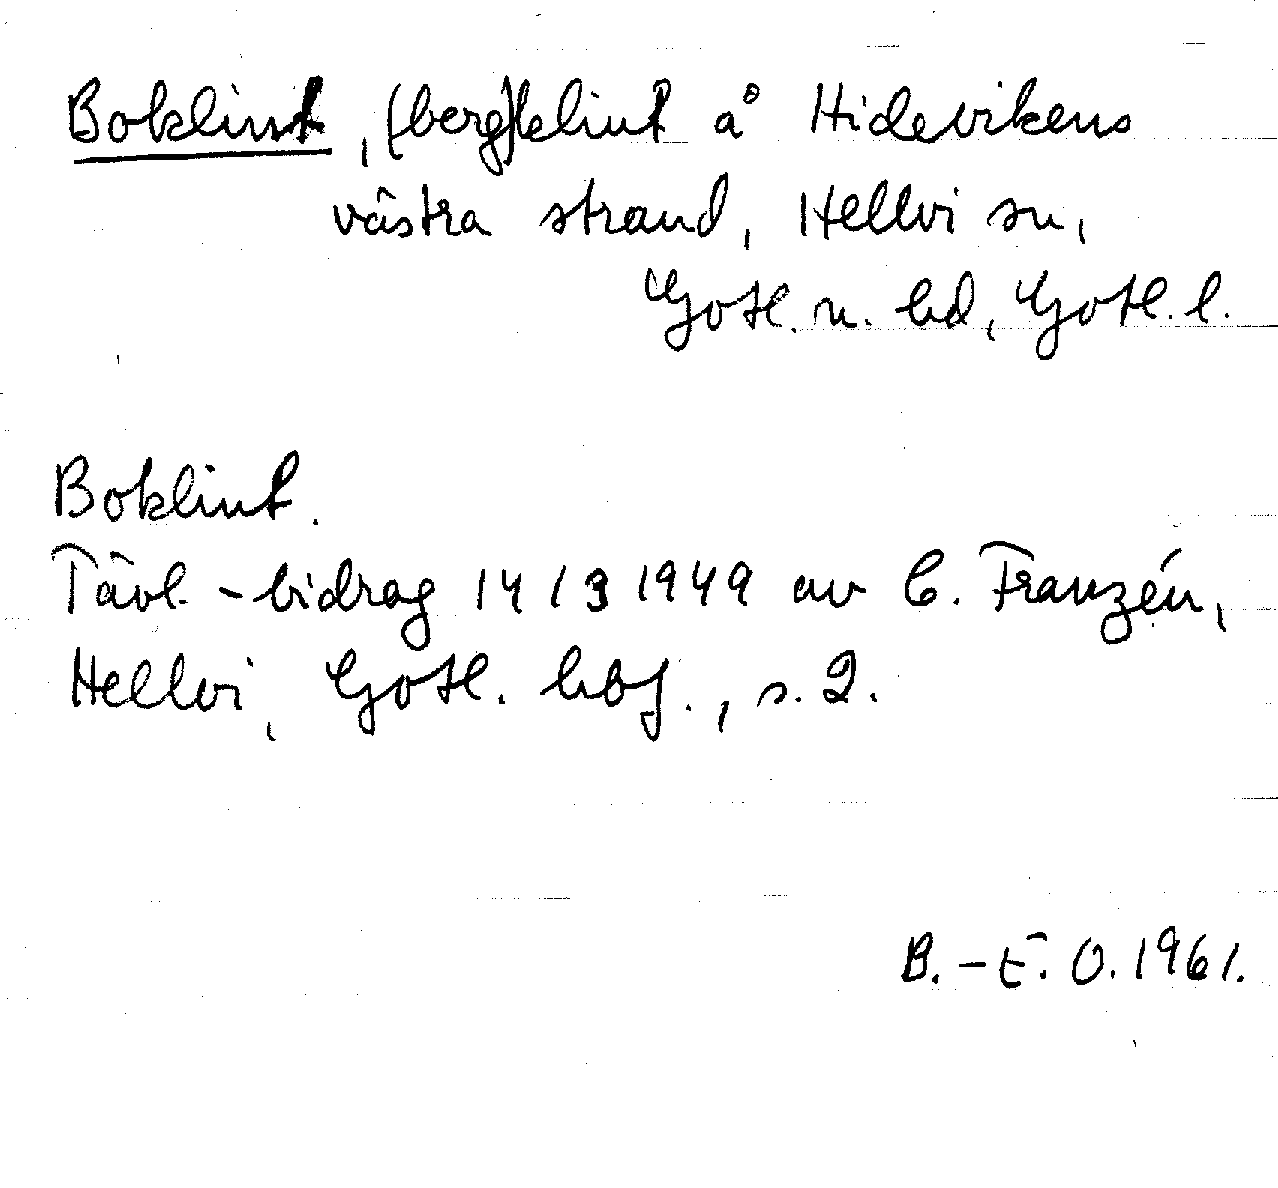 Boklint, (berg)klint å Hidevikens
västra strand, Hellvi sn,
Gotl. n. hd, Gotl. l.
Boklint.
Tävl.-bidrag 14/3 1949 av C. Franzén,
Hellvi, Gotl. hbf., s. 2.
B.-E. O. 1961.